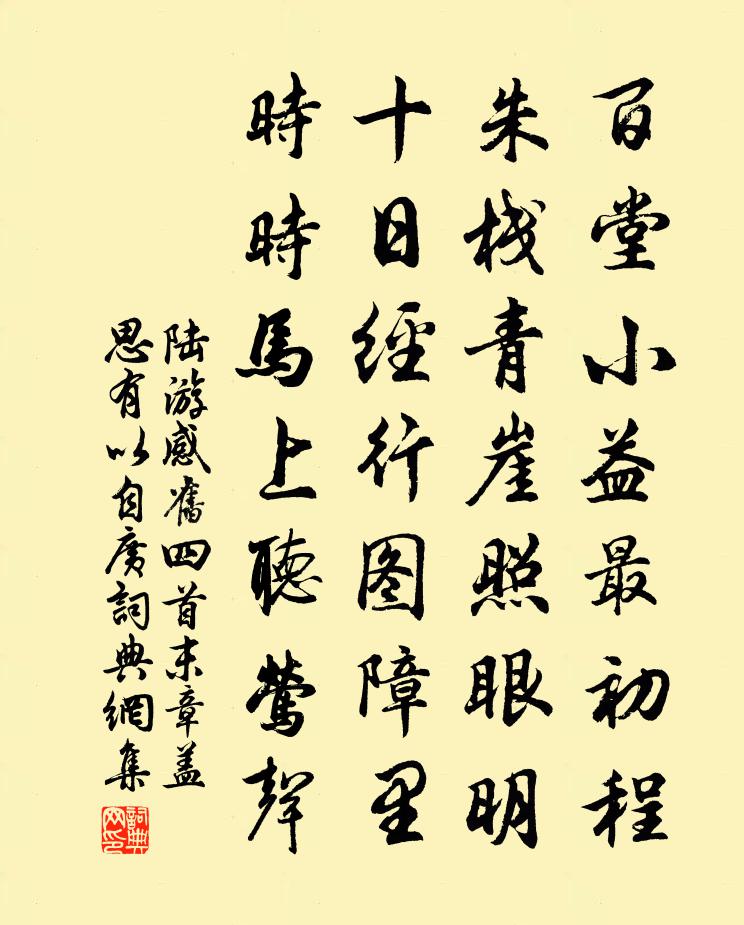 百堂小益最初程
朱栈青崖照眼明
十日經行图障里
時時馬上聽鶯聲
陆游感舊四首末章盖
思有以自广詞典網集
詞典网印